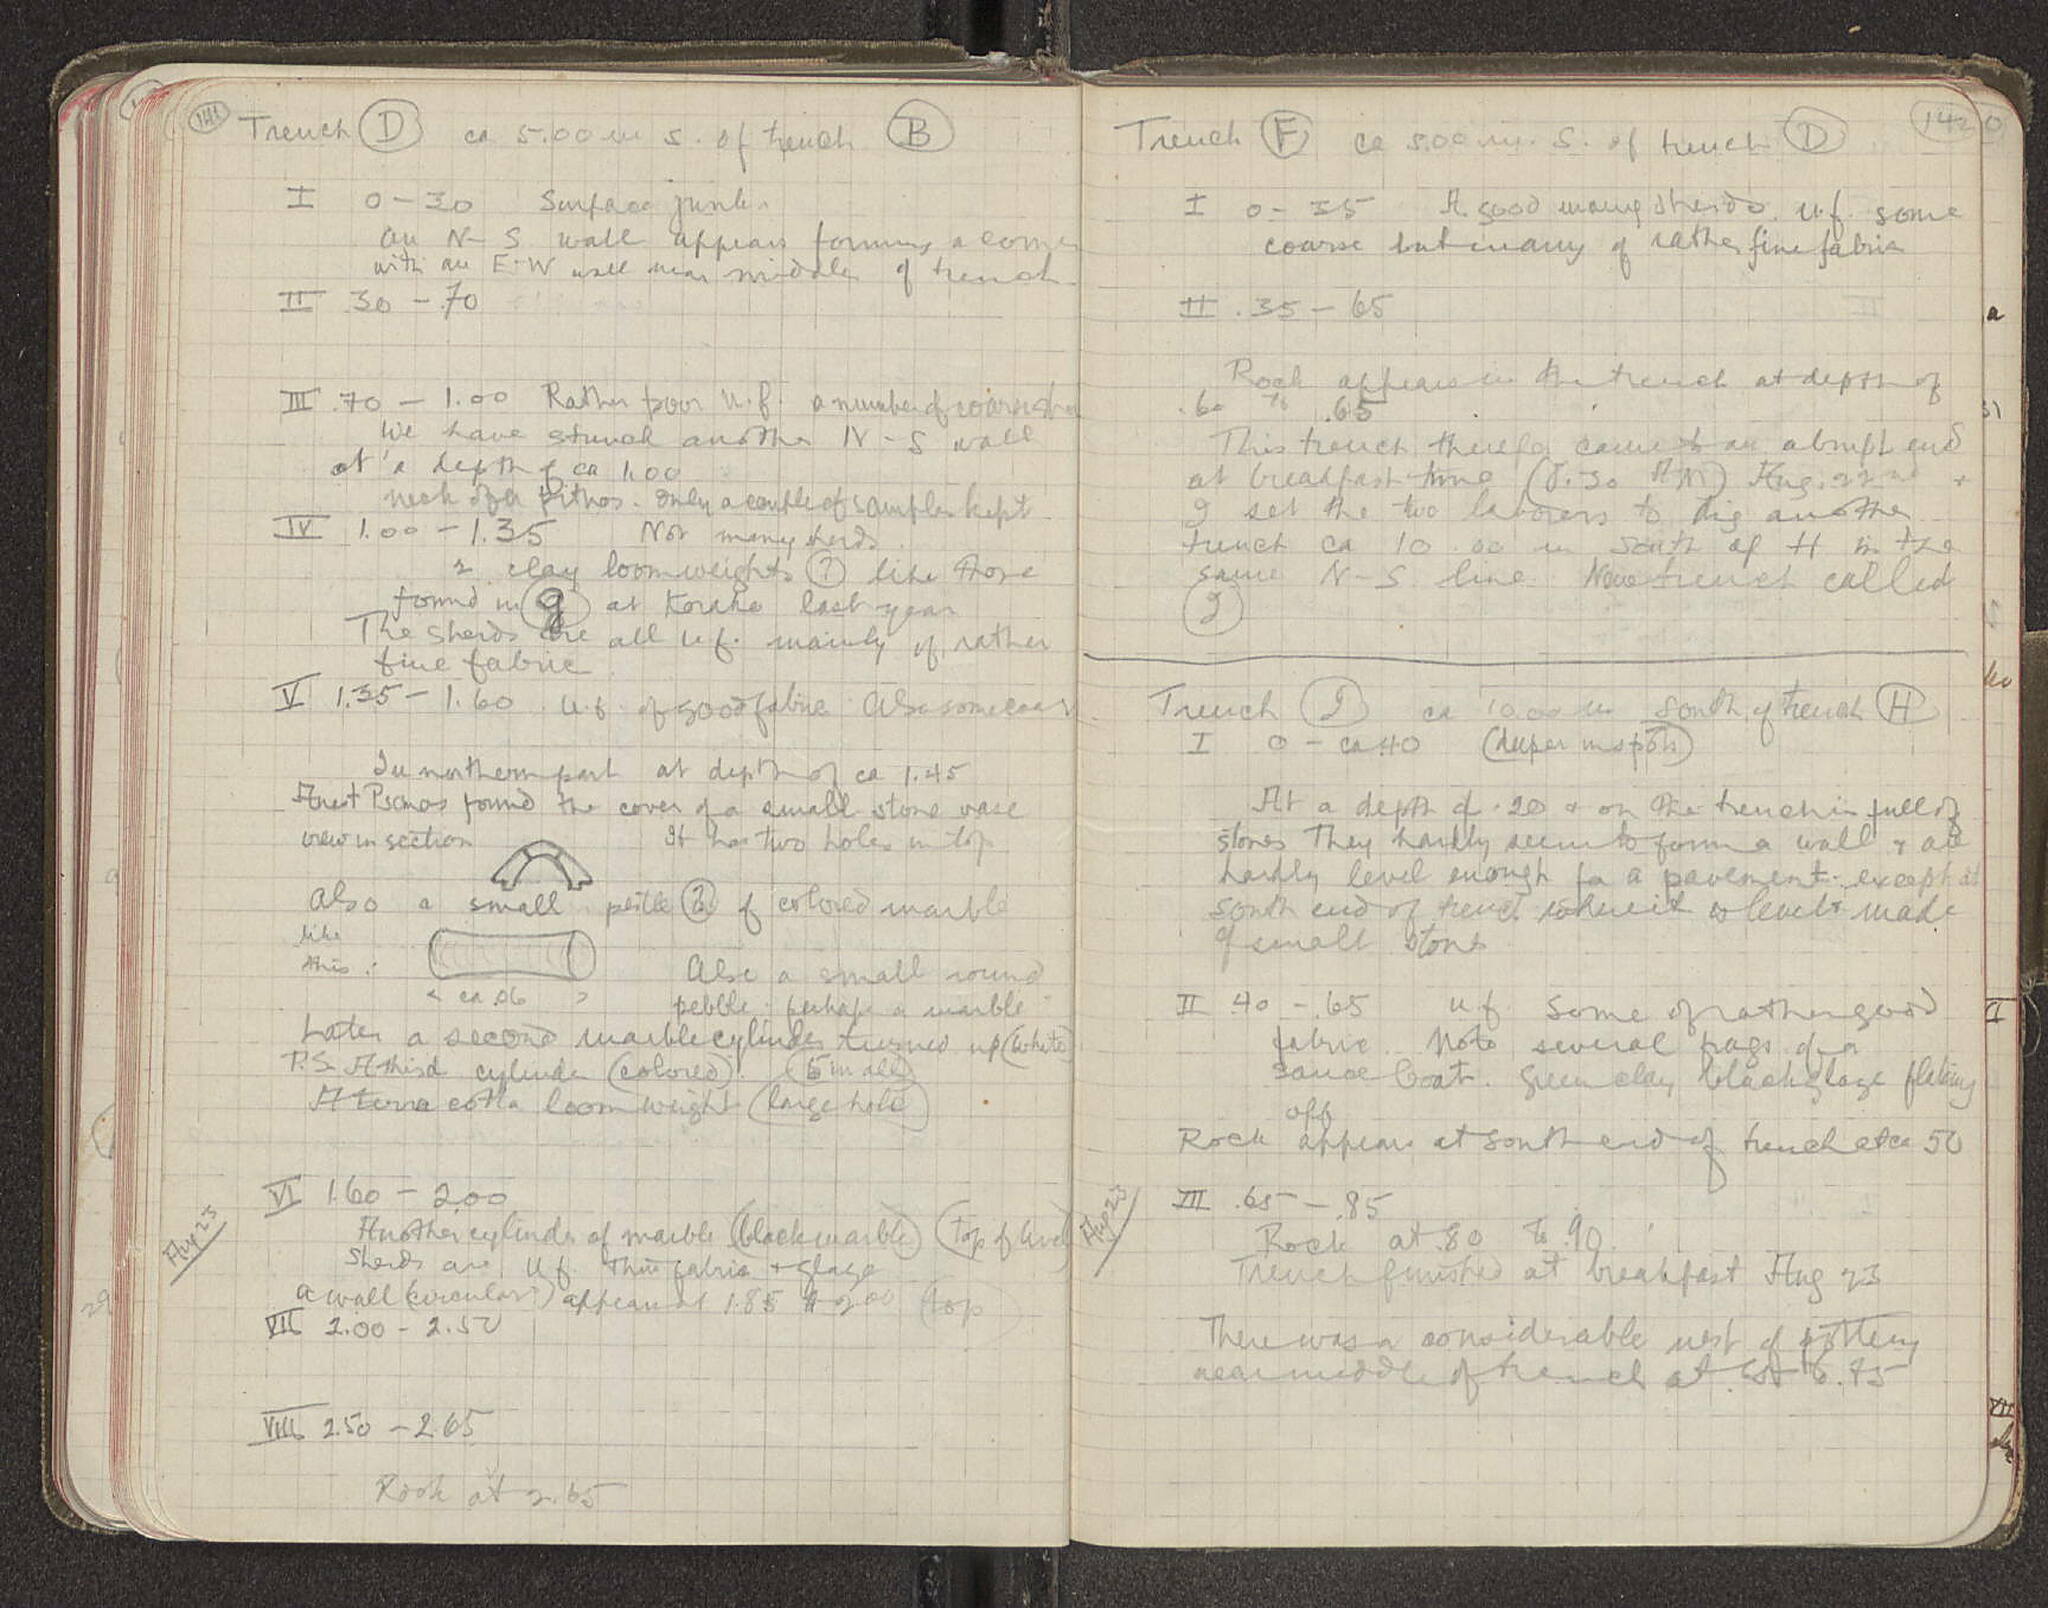 141
Trench D ca 5.00 m S. of trench B
I 0 - 30 Surface junk.
an N-S wall appears forming a corner
with an E-W wall near middle of trench
II 30 - .70
III .70 - 1.00 Rather poor U.f. a number of coarse
We have struck another N-S wall
at a depth of ca 1.00
neck of a pithos. only a couple of samples kept
IV 1.00 - 1.35 Not many sherds.
2 clay loomweights (?) like those
found in g at Korako last year
The sherds are all U.f. mainly of rather
fine fabric
V 1.35 - 1.60 U.f. of good fabric Also some coars
In northern part at depth of ca 1.45
found the cover of a small stone vase
view in section It has two holes in top
Also a small pestle (?) of colored marble
like
this:
< ca .06 >
Also a small round
pebble. perhaps a marble
Later a second marble cylinder turned up (white)
P.S. A third cylinder (colored). (5 in all)
A terra cotta loom weight (large hole)
Aug 23
VI 1.60 - 2.00
Another cylinder of marble (black marble) (top of level)
Sherds are U.f. thin fabric + glaze
a wall (circular?) appears at 1.85 to 2.00 (top
VII 2.00 - 2.50
VIII 2.50 - 2.65
Rock at 2.65
142
Trench F ca 5.00 m. S. of trench D
I 0 - 35 A good many sherds. U.f. some
coarse but many of rather fine fabric
II .35 - 65
Rock appears in the trench at depth of
.60 to .65
This trench therefor came to an abrupt end
at breakfast time (8.30 AM) Aug. 22nd +
I set the two laborers to dig another
trench ca 10.00 m south of H in the
same N-S line. New trench called
J
Trench J ca 10.00 m south of trench H
I 0 - ca 40 (deeper in spots)
At a depth of .20 + on the trench is full of
stones They hardly seem to form a wall + are
hardly level enough for a pavement except at
south end of trench where it is level + made
of small stones
II 40 - .65 U.f. Some of rather good
fabric. Note several frags of a
sauce boat. green clay black glaze flaking
off
Rock appears at south end of trench at ca 50
Aug 23
III .65 - .85
Rock at .80 to .90.
Trench finished at breakfast Aug 23
There was a considerable nest of pottery
near middle of trench at .65 to .75